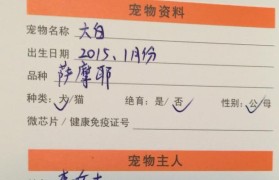 宠物资料
宠物名称 大白
出生日期 2015.1月份
品种 萨摩耶
种类：犬/猫 绝育：是/否 性别：公/母
微芯片/健康免疫证号
宠物主人